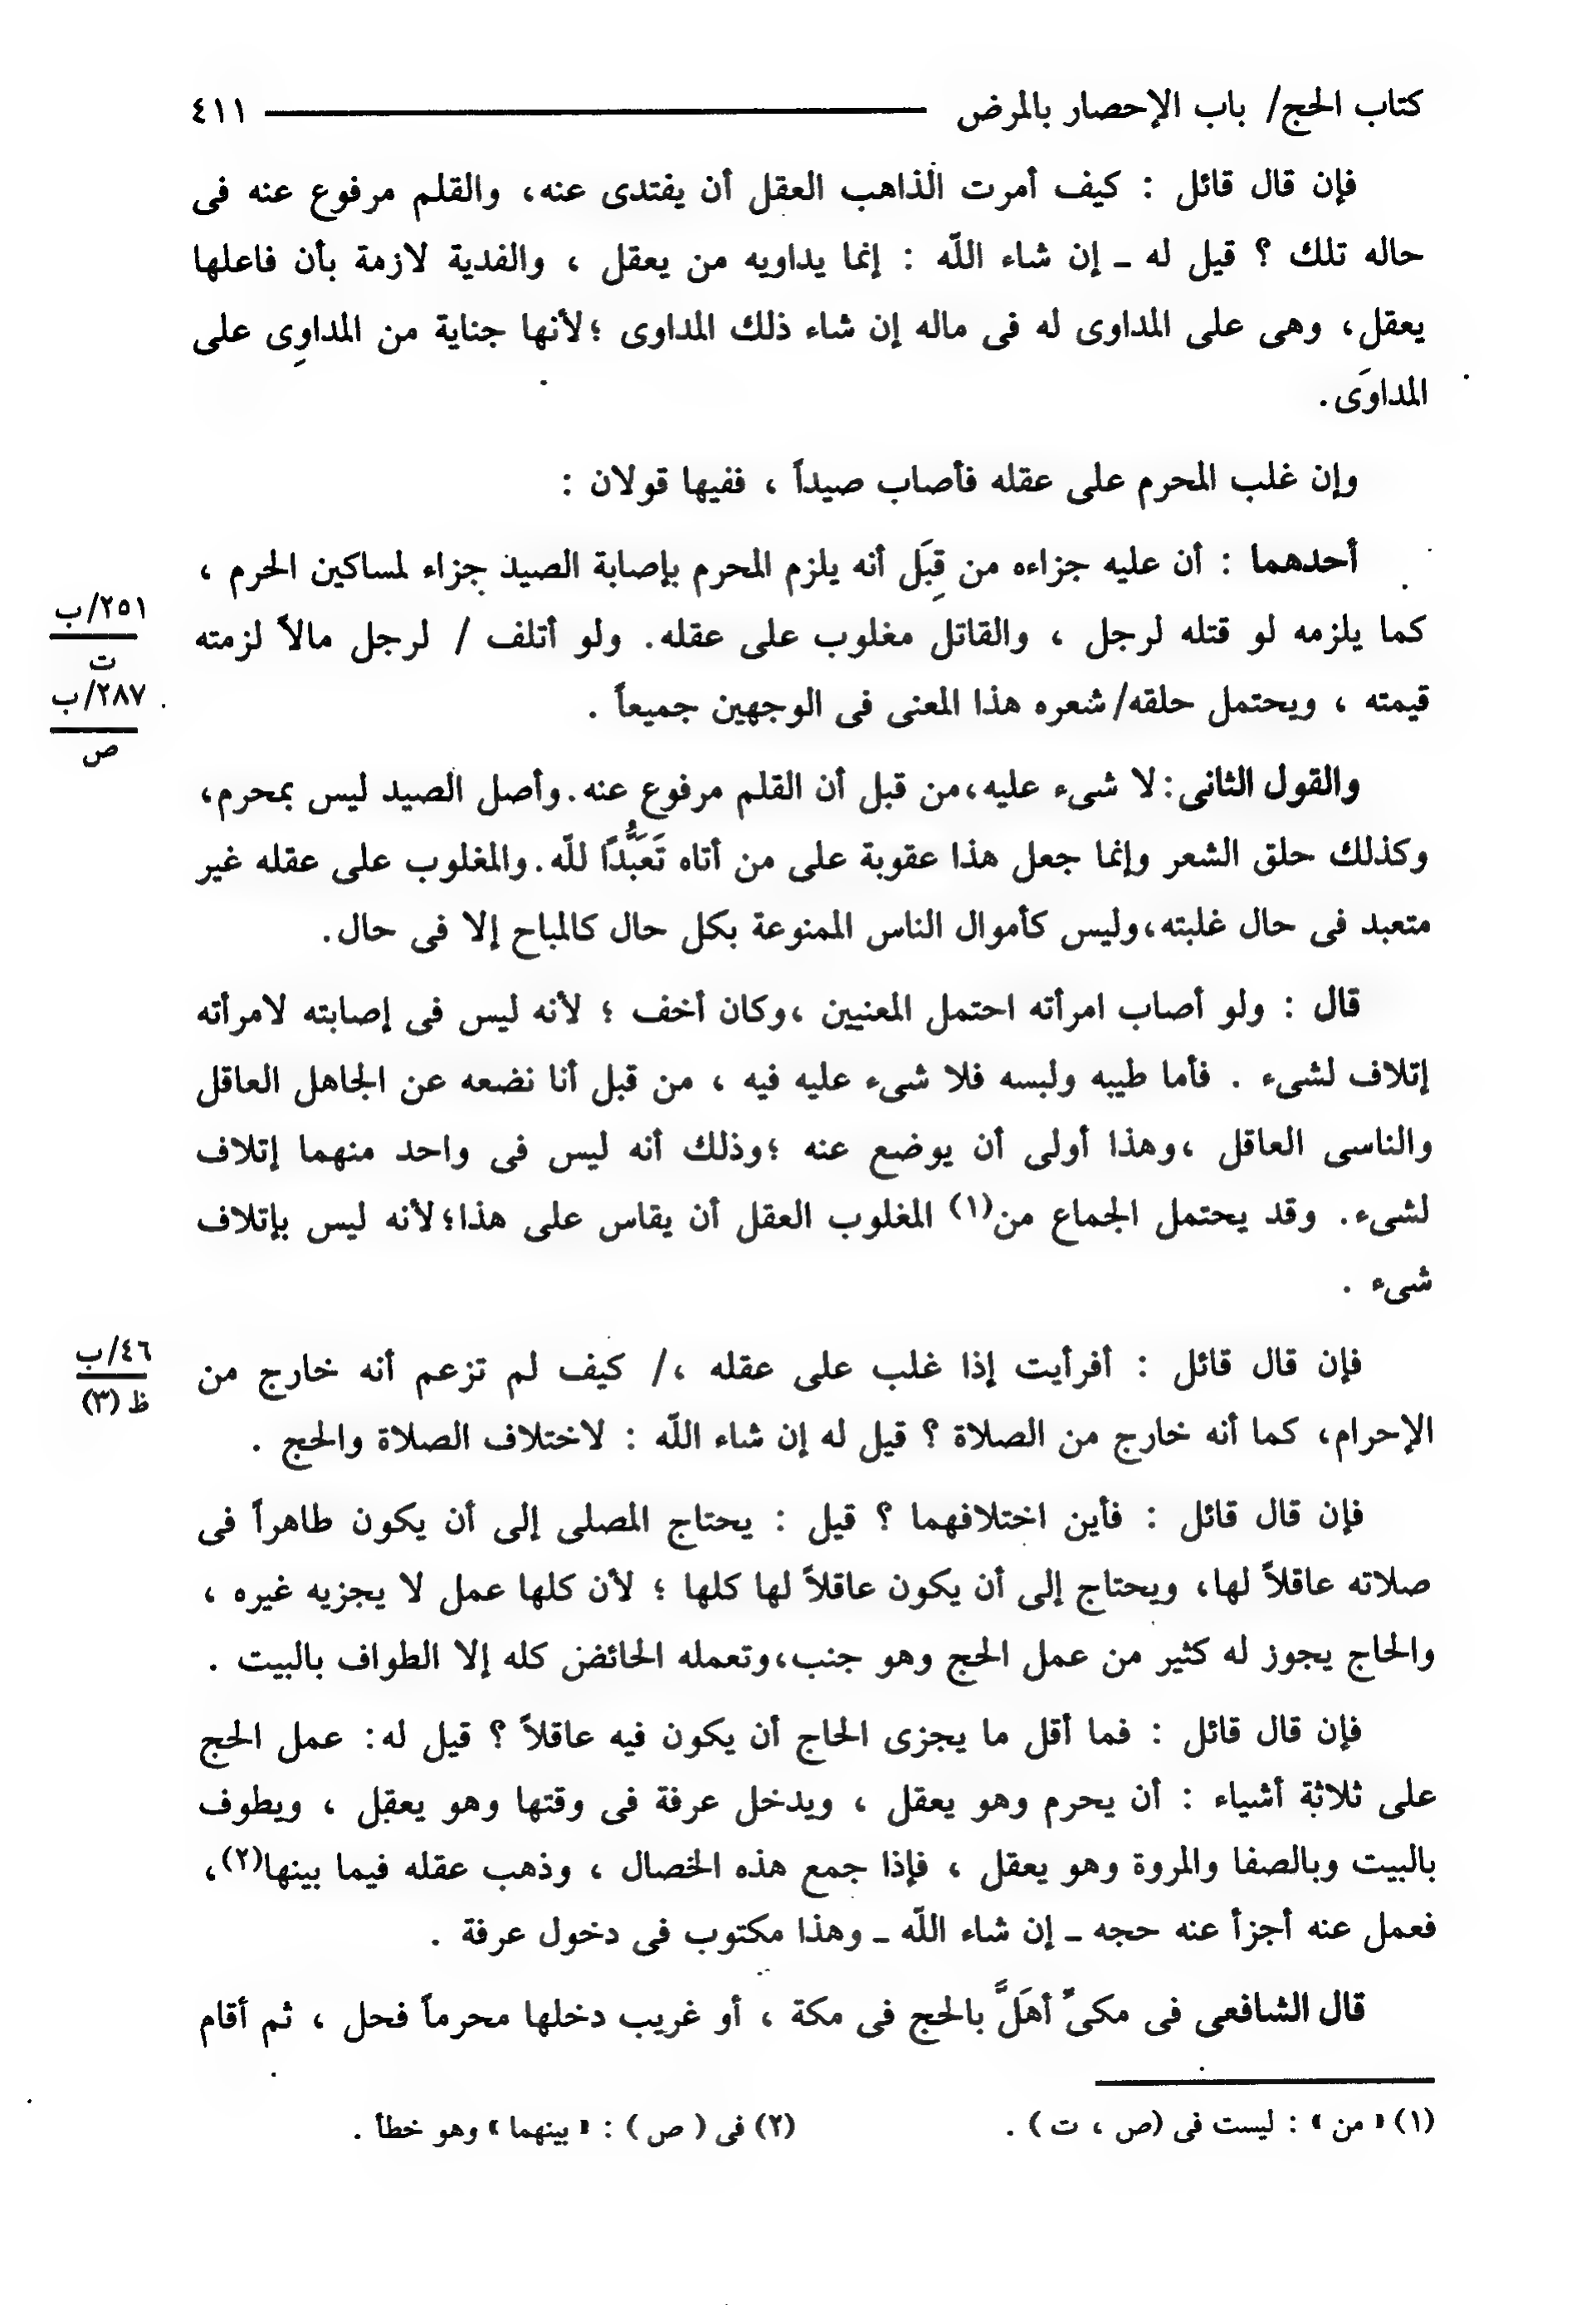 كتاب الحج/ باب الإحصار بالمرض ٤١١
فإن قال قائل : كيف أمرت الذاهب العقل أن يفتدى عنه، والقلم مرفوع عنه فى
حاله تلك ؟ قيل له ـ إن شاء الله : إنما يداويه من يعقل ، والفدية لازمة بأن فاعلها
يعقل، وهى على المداوى له فى ماله إن شاء ذلك المداوى ؛لأنها جناية من المداوِى على
المداوَى.
وإن غلب المحرم على عقله فأصاب صيداً ، ففيها قولان :
أحدهما : أن عليه جزاءه من قِبَل أنه يلزم المحرم بإصابة الصيد جزاء لمساكين الحرم ،
كما يلزمه لو قتله لرجل ، والقاتل مغلوب على عقله. ولو أتلف / لرجل مالاً لزمته
قيمته ، ويحتمل حلقه/ شعره هذا المعنى فى الوجهين جميعاً .
٢٥١/ب
ت
٢٨٧/ب
ص
والقول الثانى:لا شىء عليه،من قبل أن القلم مرفوع عنه.وأصل الصيد ليس بمحرم،
وكذلك حلق الشعر وإنما جعل هذا عقوبة على من أتاه تَعَبُّدًا لله.والمغلوب على عقله غير
متعبد فى حال غلبته،وليس كأموال الناس الممنوعة بكل حال كالمباح إلا فى حال.
قال : ولو أصاب امرأته احتمل المعنيين ،وكان أخف ؛ لأنه ليس فى إصابته لامرأته
إتلاف لشىء . فأما طيبه ولبسه فلا شىء عليه فيه ، من قبل أنا نضعه عن الجاهل العاقل
والناسى العاقل ،وهذا أولى أن يوضع عنه ؛وذلك أنه ليس فى واحد منهما إتلاف
لشىء. وقد يحتمل الجماع من(١) المغلوب العقل أن يقاس على هذا؛لأنه ليس بإتلاف
شىء .
فإن قال قائل : أفرأيت إذا غلب على عقله ،/ كيف لم تزعم أنه خارج من
الإحرام، كما أنه خارج من الصلاة ؟ قيل له إن شاء الله : لاختلاف الصلاة والحج .
٤٦/ب
ظ (٣)
فإن قال قائل : فأين اختلافهما ؟ قيل : يحتاج المصلى إلى أن يكون طاهراً فى
صلاته عاقلاً لها، ويحتاج إلى أن يكون عاقلاً لها كلها ؛ لأن كلها عمل لا يجزيه غيره ،
والحاج يجوز له كثير من عمل الحج وهو جنب،وتعمله الحائض كله إلا الطواف بالبيت .
فإن قال قائل : فما أقل ما يجزى الحاج أن يكون فيه عاقلاً ؟ قيل له: عمل الحج
على ثلاثة أشياء : أن يحرم وهو يعقل ، ويدخل عرفة فى وقتها وهو يعقل ، ويطوف
بالبيت وبالصفا والمروة وهو يعقل ، فإذا جمع هذه الخصال ، وذهب عقله فيما بينها(٢)،
فعمل عنه أجزأ عنه حجه ـ إن شاء الله ـ وهذا مكتوب فى دخول عرفة .
قال الشافعى فى مكىٍّ أهَلَّ بالحج فى مكة ، أو غريب دخلها محرماً فحل ، ثم أقام
(١) « من » : ليست فى (ص ، ت ) .
(٢) فى ( ص ) : « بينهما » وهو خطأ .